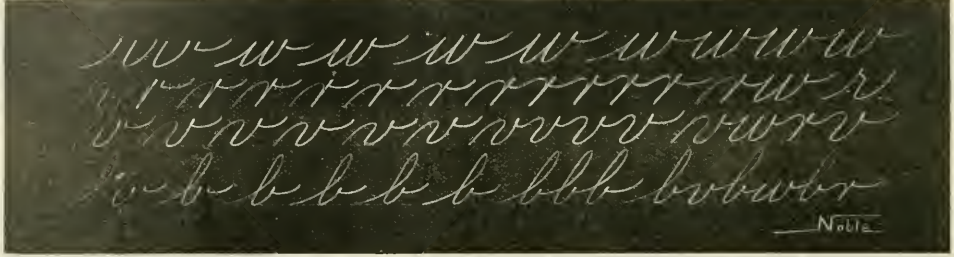 w w w w w wwww
r r r r r r r rrrrr rwr
v v v v v v vvvv vwrv
b b b b b bbb bvbwbr
Noble